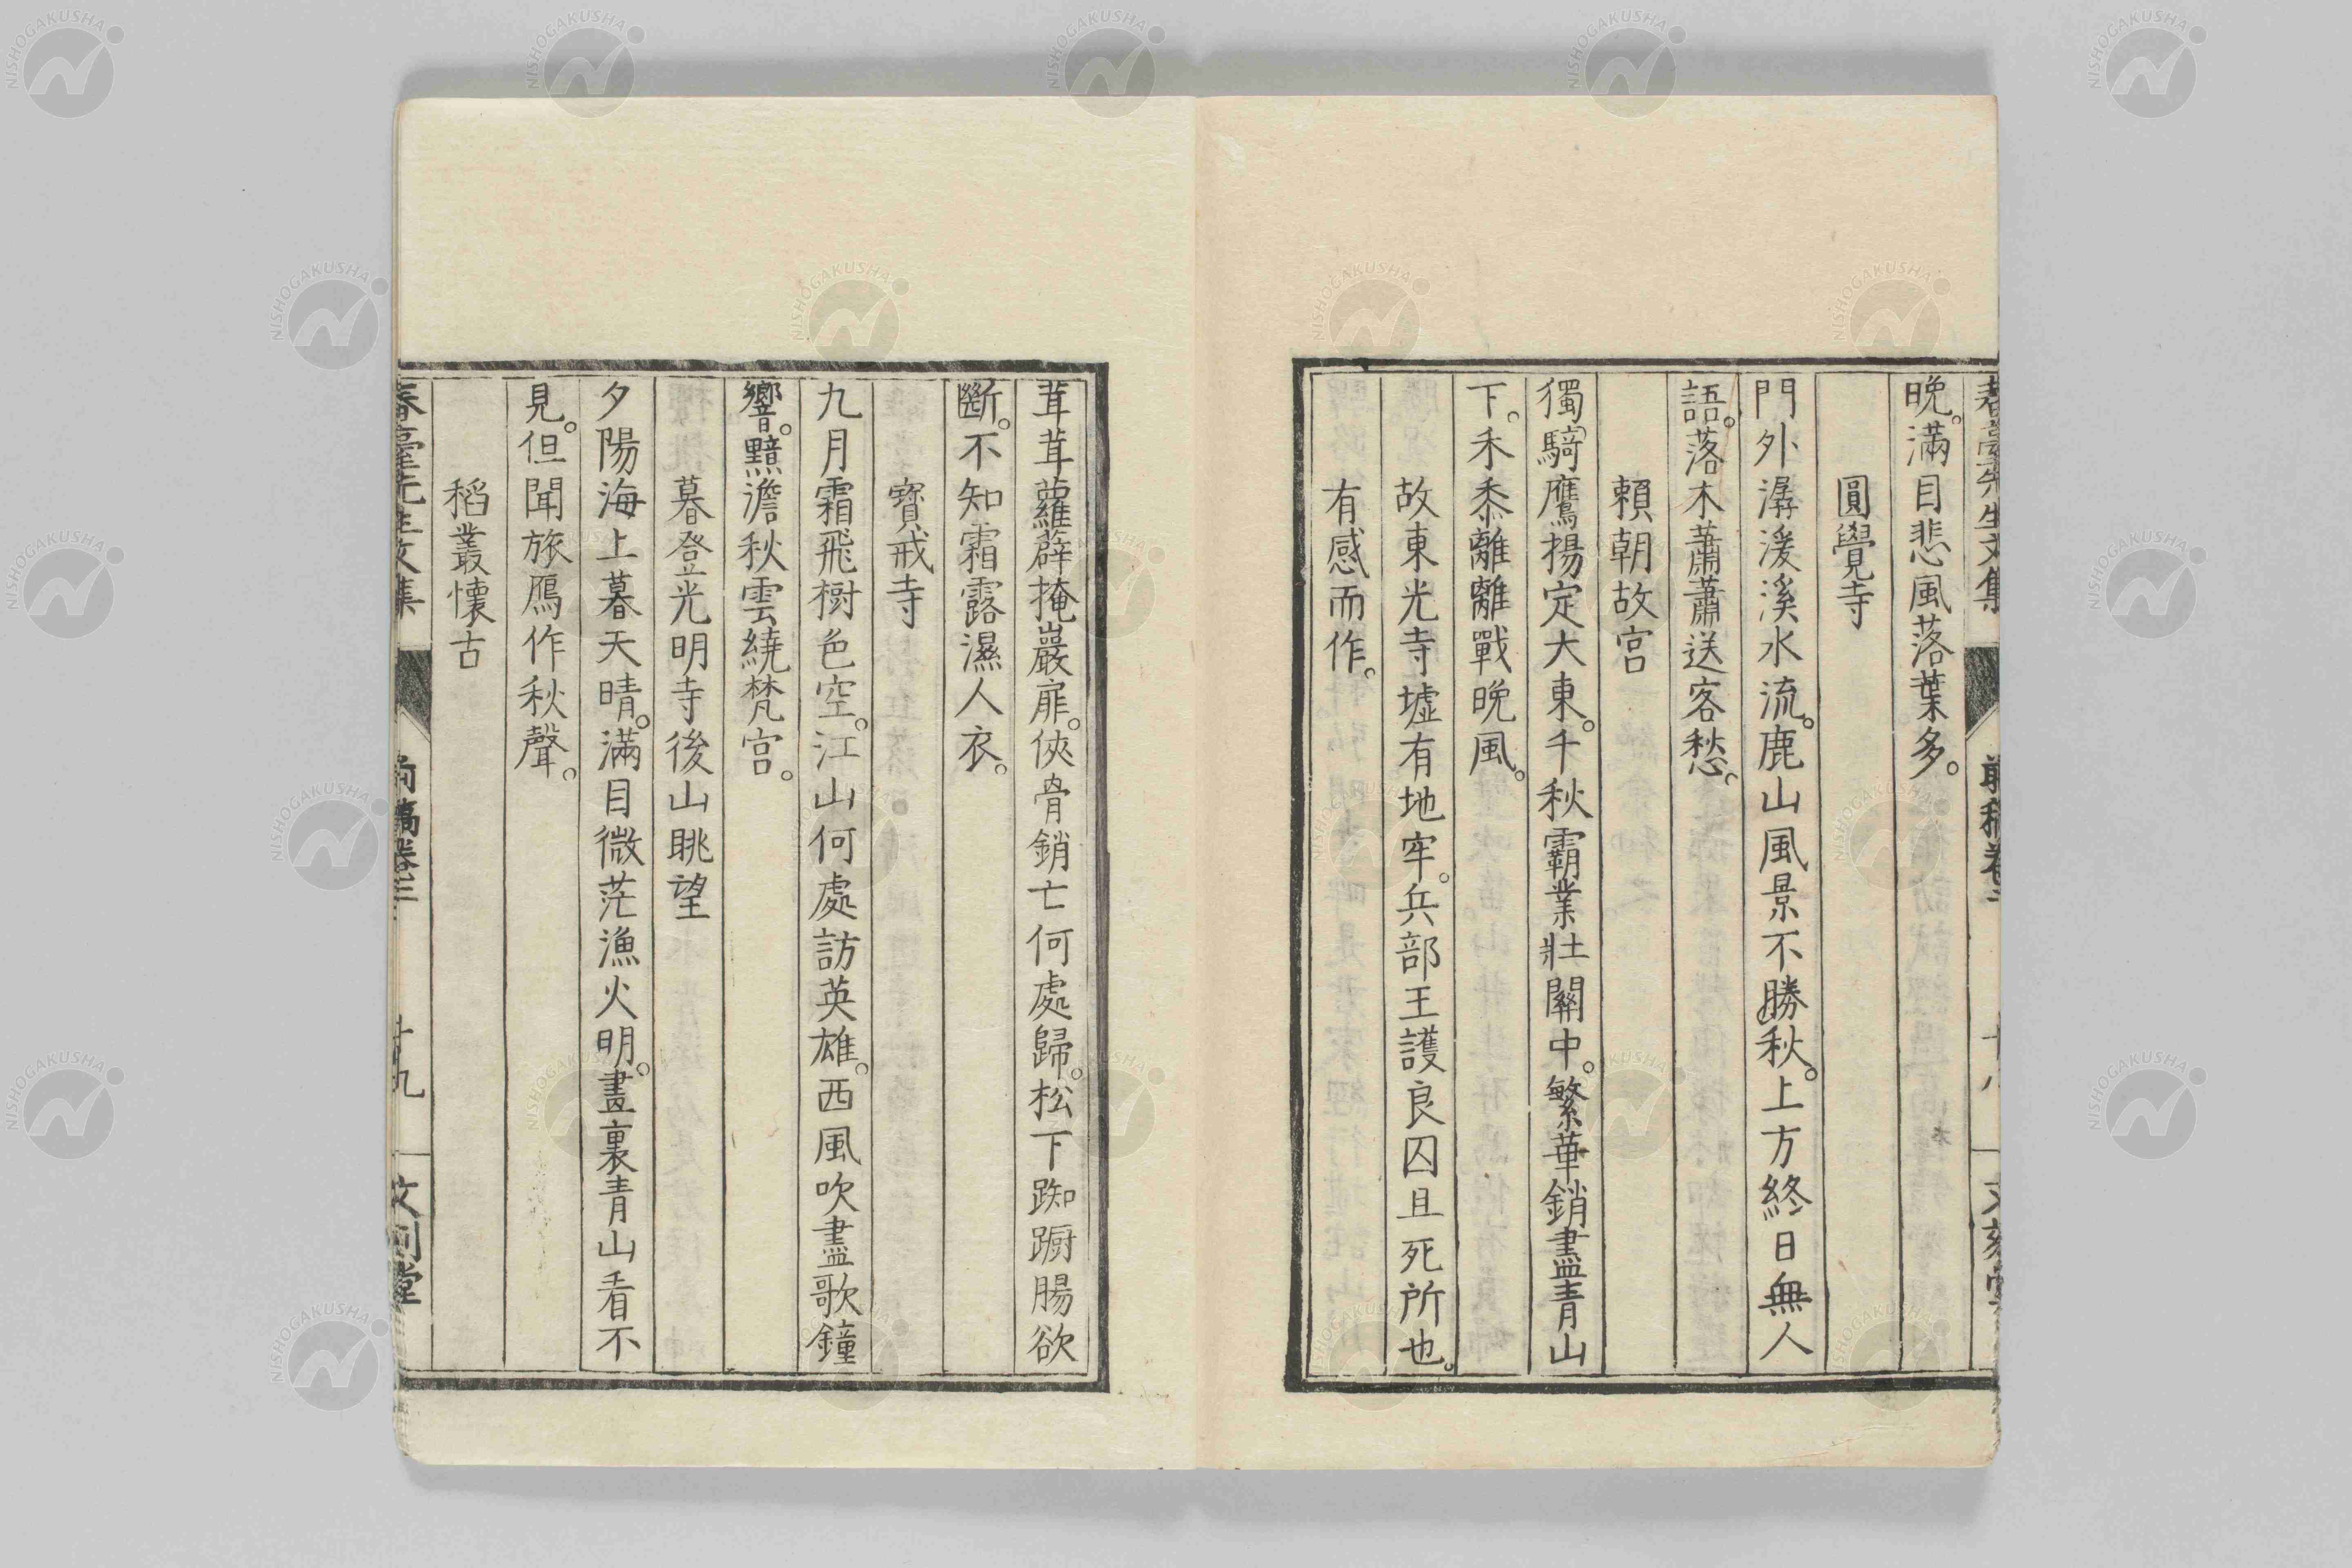 春臺先生文集 前稿卷 文刻堂
晩。滿目悲風落葉多。
圓覺寺
門外潺湲溪水流。鹿山風景不勝秋。上方終日無人
語。落木蕭蕭送客愁。
賴朝故宮
獨騎鷹揚定大東。千秋霸業壯關中。繁華銷盡青山
下。禾黍離離戰晩風。
故東光寺墟有地牢。兵部王護良囚且死所也。
有感而作。
茸茸蘿薜掩巖扉。俠骨銷亡何處歸。松下踟蹰腸欲
斷。不知霜露濕人衣。
寶戒寺
九月霜飛樹色空。江山何處訪英雄。西風吹盡歌鐘
響。黯澹秋雲繞梵宮。
暮登光明寺後山眺望
夕陽海上暮天晴。滿目微茫漁火明。畫裏青山看不
見。但聞旅鴈作秋聲。
稻叢懷古
春臺先生文集 前稿卷三 十九 文刻堂
NISHOGAKUSHA